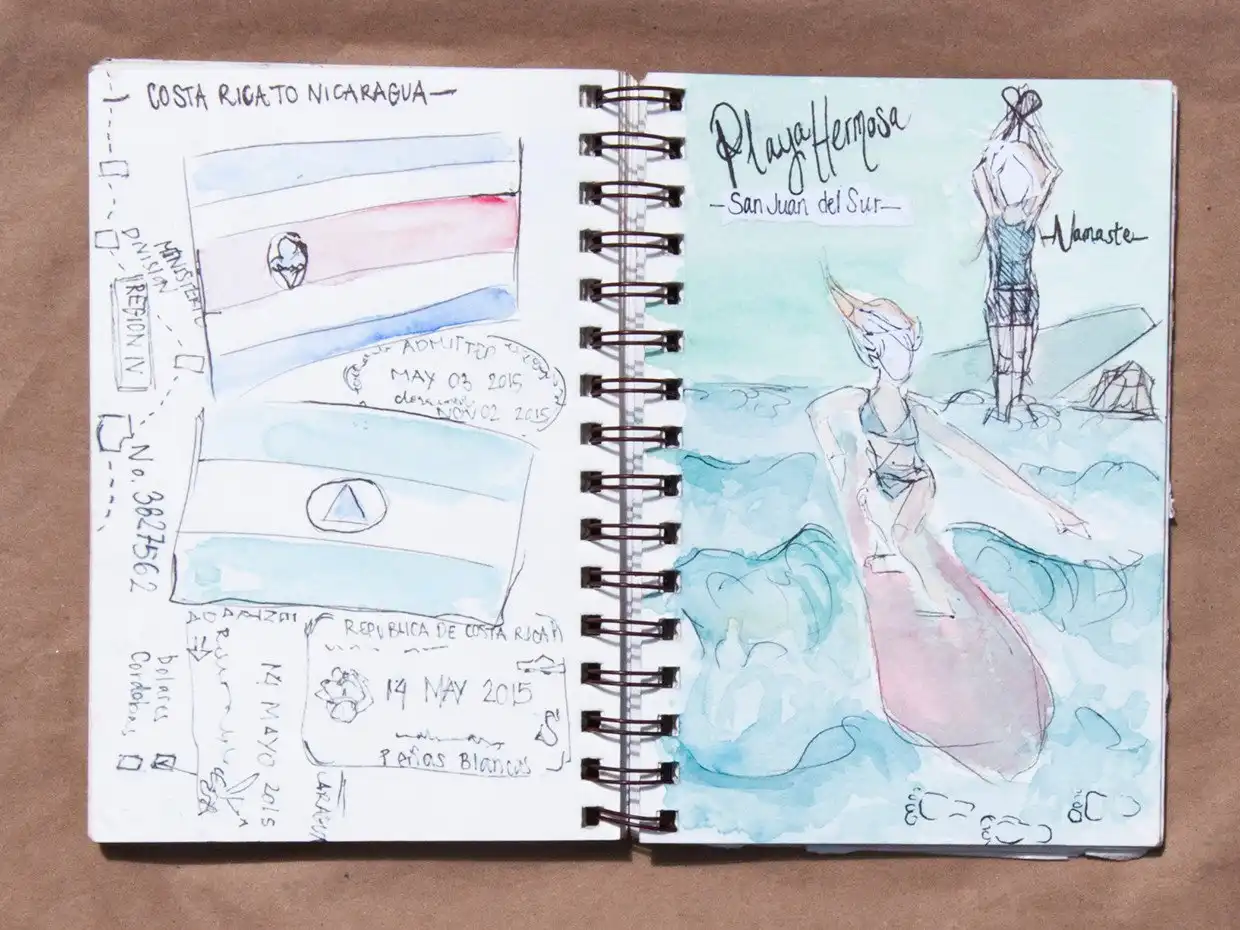 COSTA RICA TO NICARAGUA—
MINISTERIO
DIVISION
REGION IV
ADMITTED
MAY 03 2015
NOV 02 2015
No. 3827562
REPUBLICA DE COSTA RICA
14 MAY 2015
Peñas Blancas
14 MAYO 2015
Dolares
Cordobas
Playa Hermosa
—San Juan del Sur—
—Namaste—